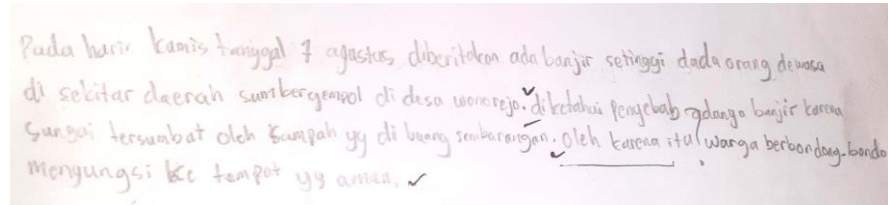 Pada hari kamis tanggal 7 agustus, diberitakan ada banjir setinggi dada orang dewasa
di sekitar daerah sumbergempol di desa wonorejo. diketahui Penyebab adanya banjir karena
sungai tersumbat oleh sampah yg di buang sembarangan. Oleh karena itu, warga berbondong-bondo
mengungsi ke tempat yg aman.